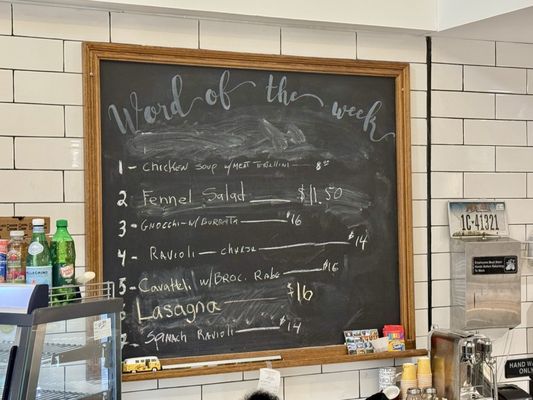 Word of the week
1 - Chicken Soup w/meat Tortellini — 8.50
2 Fennel Salad — $11.50
3 - Gnocchi - w/Burratta — $16
4 - Ravioli — cheese — $14
5 - Cavatelli w/Broc. Rabe — $16
Lasagna — $16
Spinach Ravioli — $14
1C·41321
HAND WA
ONLY